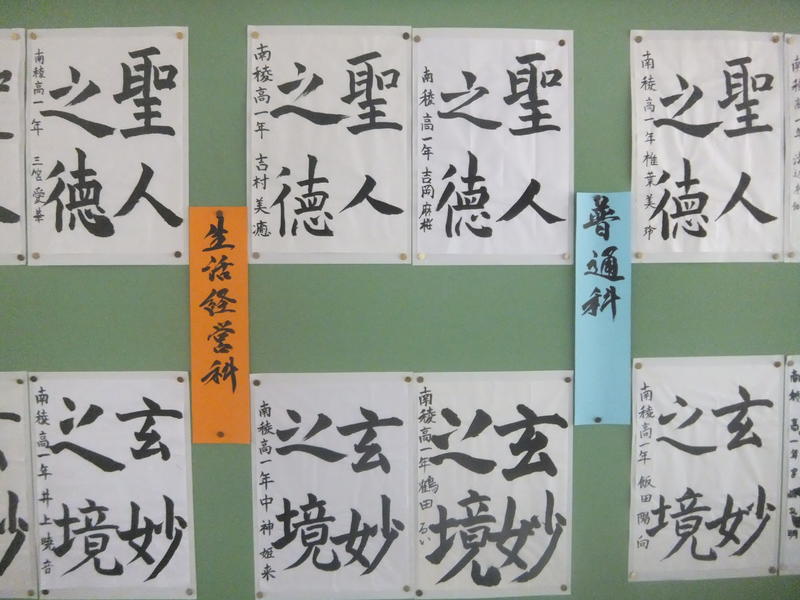 聖人
之德
南稜高一年 三宮愛華
聖人
之德
南稜高一年 吉村美憑
聖人
之德
南稜高一年 吉岡麻桜
聖人
之德
南稜高一年 椎葉美玲
生活経営科
普通科
玄妙
之境
南稜高一年 井上暁音
玄妙
之境
南稜高一年 中神姫来
玄妙
之境
南稜高一年 鶴田るい
玄妙
之境
南稜高一年 飯田陽向